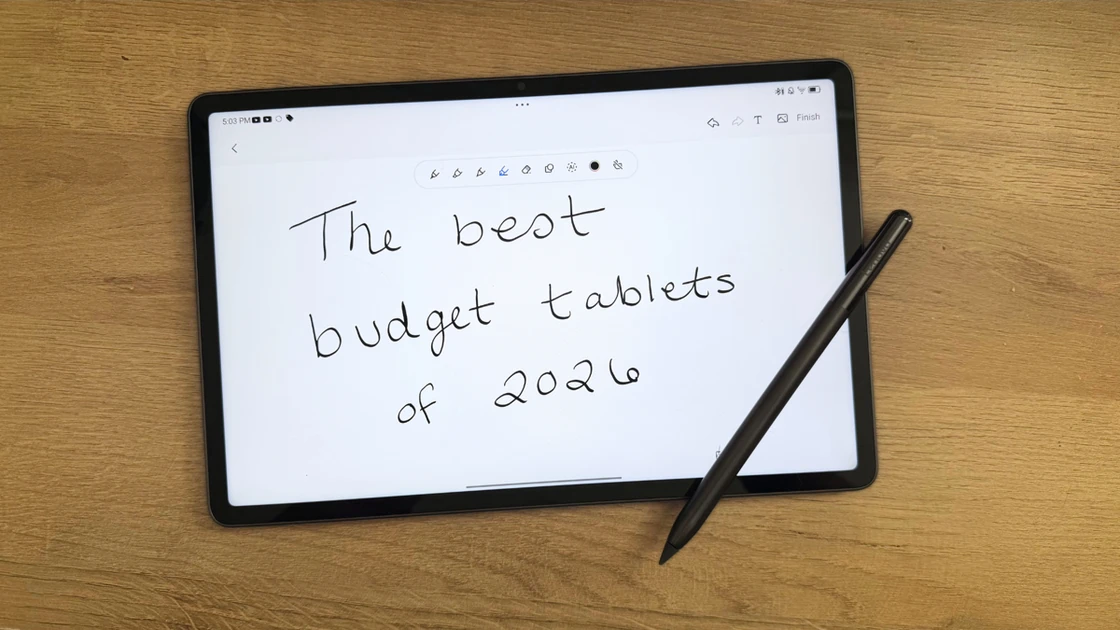 5:03 PM
Finish
The best
budget tablets
of 2026